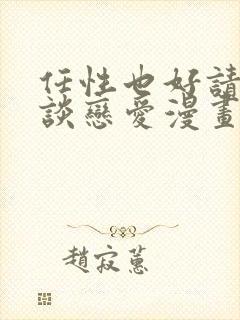 任性也好請
談戀愛漫畫
趙寂蕙